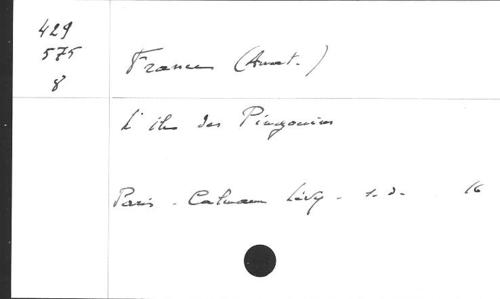 429
575
8
France (Anat.)
L'île des Pingouins
Paris - Calmann Lévy - s.d. 16